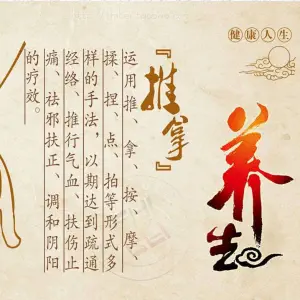 健康人生
养生
『推拿』
运用推、拿、按、摩、
揉、捏、点、拍等形式多
样的手法，以期达到疏通
经络、推行气血、扶伤止
痛、祛邪扶正、调和阴阳
的疗效。